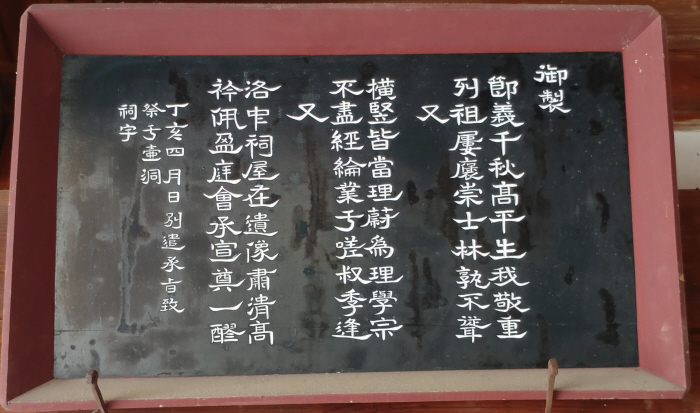 御製
節義千秋高平生我敬重
列祖屢襃崇士林孰不聳
又
橫竪皆當理蔚爲理學宗
不盡經綸業于嗟叔季逢
又
洛中祠屋在遺像肅淸高
衿佩盈庭會承宣奠一醪
丁亥四月日別遣承旨致
祭于壺洞
祠宇